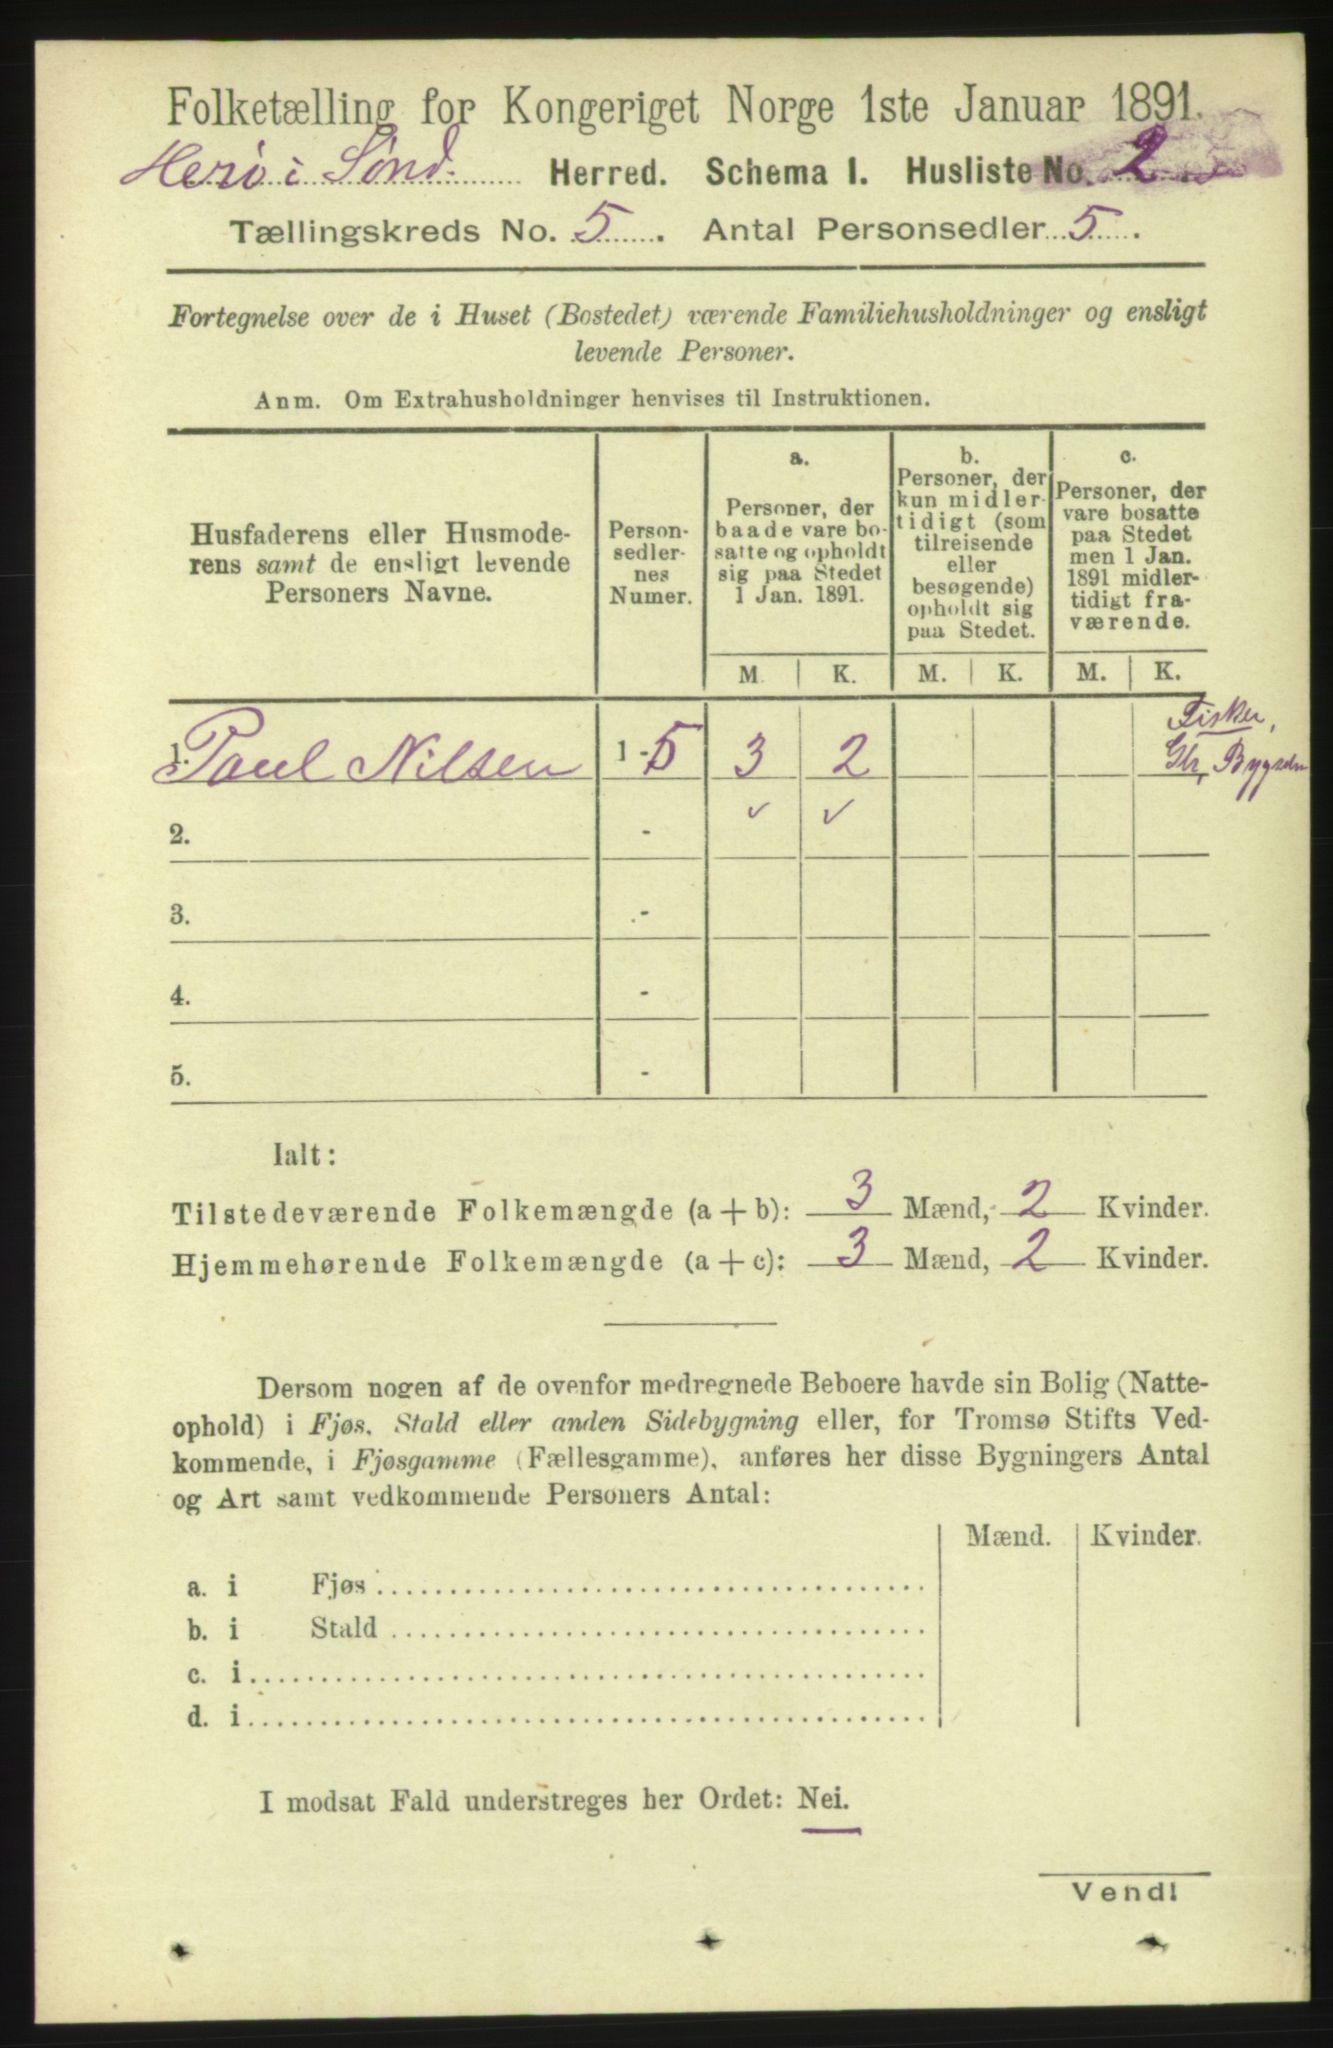 Folketælling for Kongeriget Norge 1ste Januar 1891.
Herø i Sønd. Herred. Schema I. Husliste No. 2.
Tællingskreds No. 5. Antal Personsedler 5.
Fortegnelse over de i Huset (Bostedet) værende Familiehusholdninger og ensligt
levende Personer.
Anm. Om Extrahusholdninger henvises til Instruktionen.
Husfaderens eller Husmode-
rens samt de ensligt levende
Personers Navne.
Person-
sedler-
nes
Numer.
a.
Personer, der
baade vare bo-
satte og opholdt
sig paa Stedet
1 Jan. 1891.
b.
Personer, der
kun midler-
tidigt (som
tilreisende
eller
besøgende)
opholdt sig
paa Stedet.
c.
Personer, der
vare bosatte
paa Stedet
men 1 Jan.
1891 midler-
tidigt fra-
værende.
M. K. M. K. M. K.
Fisker,
1. Paul Nilsen 1 - 5 3 2 Gbr, Bygseln
✓ ✓
2. -
3. -
4. -
5. -
Ialt:
Tilstedeværende Folkemængde (a + b): 3 Mænd, 2 Kvinder.
Hjemmehørende Folkemængde (a + c): 3 Mænd, 2 Kvinder.
Dersom nogen af de ovenfor medregnede Beboere havde sin Bolig (Natte-
ophold) i Fjøs, Stald eller anden Sidebygning eller, for Tromsø Stifts Ved-
kommende, i Fjøsgamme (Fællesgamme), anføres her disse Bygningers Antal
og Art samt vedkommende Personers Antal:
Mænd. Kvinder.
a. i Fjøs
b. i Stald
c. i
d. i
I modsat Fald understreges her Ordet: Nei.
Vend!